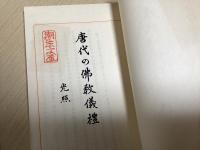 唐代の佛教儀禮
光照